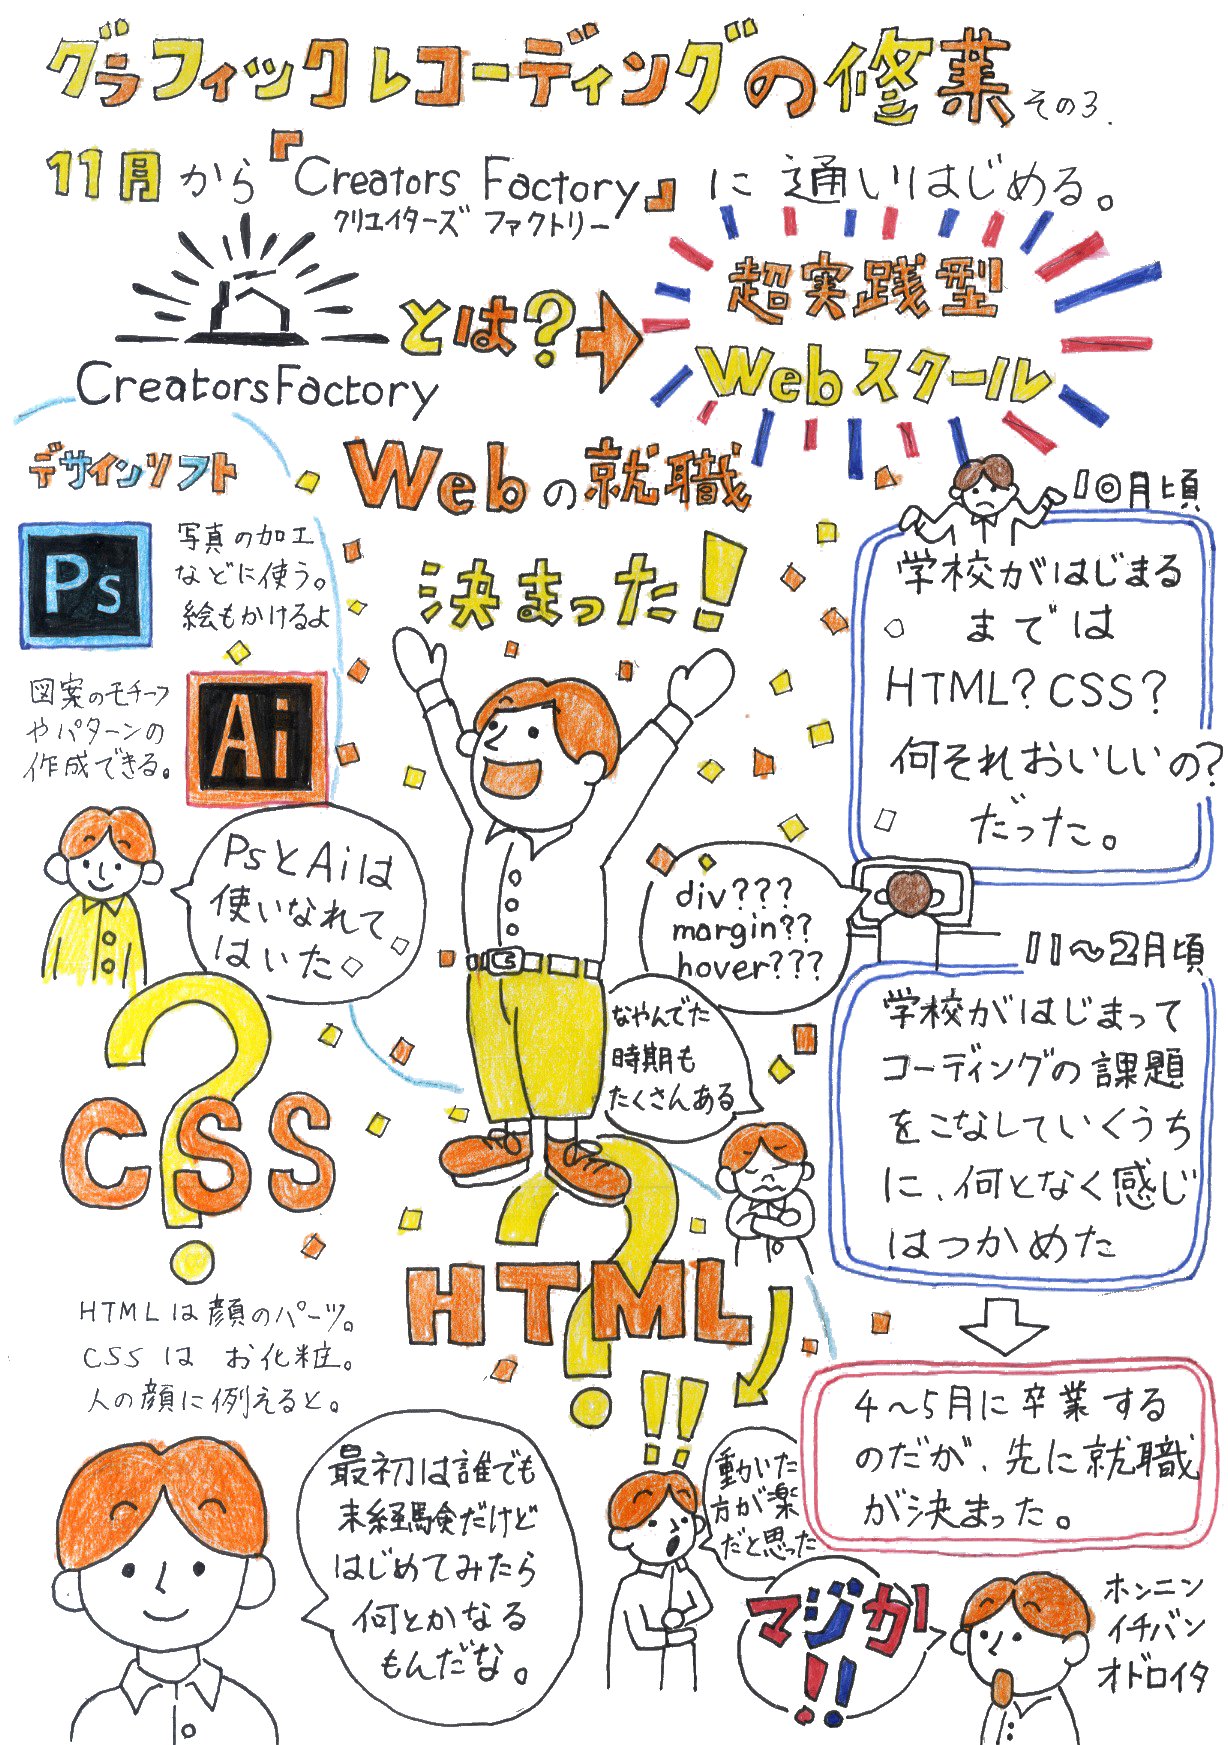 グラフィックレコーディングの修業 その3.
11月から『Creators Factory』に通いはじめる。
クリエイターズ ファクトリー
CreatorsFactory
とは?
超実践型
Webスクール
デザインソフト
Ps
写真の加工
などに使う。
絵もかけるよ
図案のモチーフ
やパターンの
作成できる。
Ai
PsとAiは
使いなれて
はいた
Webの就職
決まった!
10月頃
学校がはじまる
までは
HTML?CSS?
何それおいしいの?
だった。
div???
margin??
hover???
11〜2月頃
学校がはじまって
コーディングの課題
をこなしていくうち
に、何となく感じ
はつかめた
なやんでた
時期も
たくさんある
?
CSS
?
HTML
HTMLは顔のパーツ。
CSSは お化粧。
人の顔に例えると。
最初は誰でも
未経験だけど
はじめてみたら
何とかなる
もんだな。
!!
動いた
方が楽
だと思った
4〜5月に卒業する
のだが、先に就職
が決まった。
マジか
!!
ホンニン
イチバン
オドロイタ